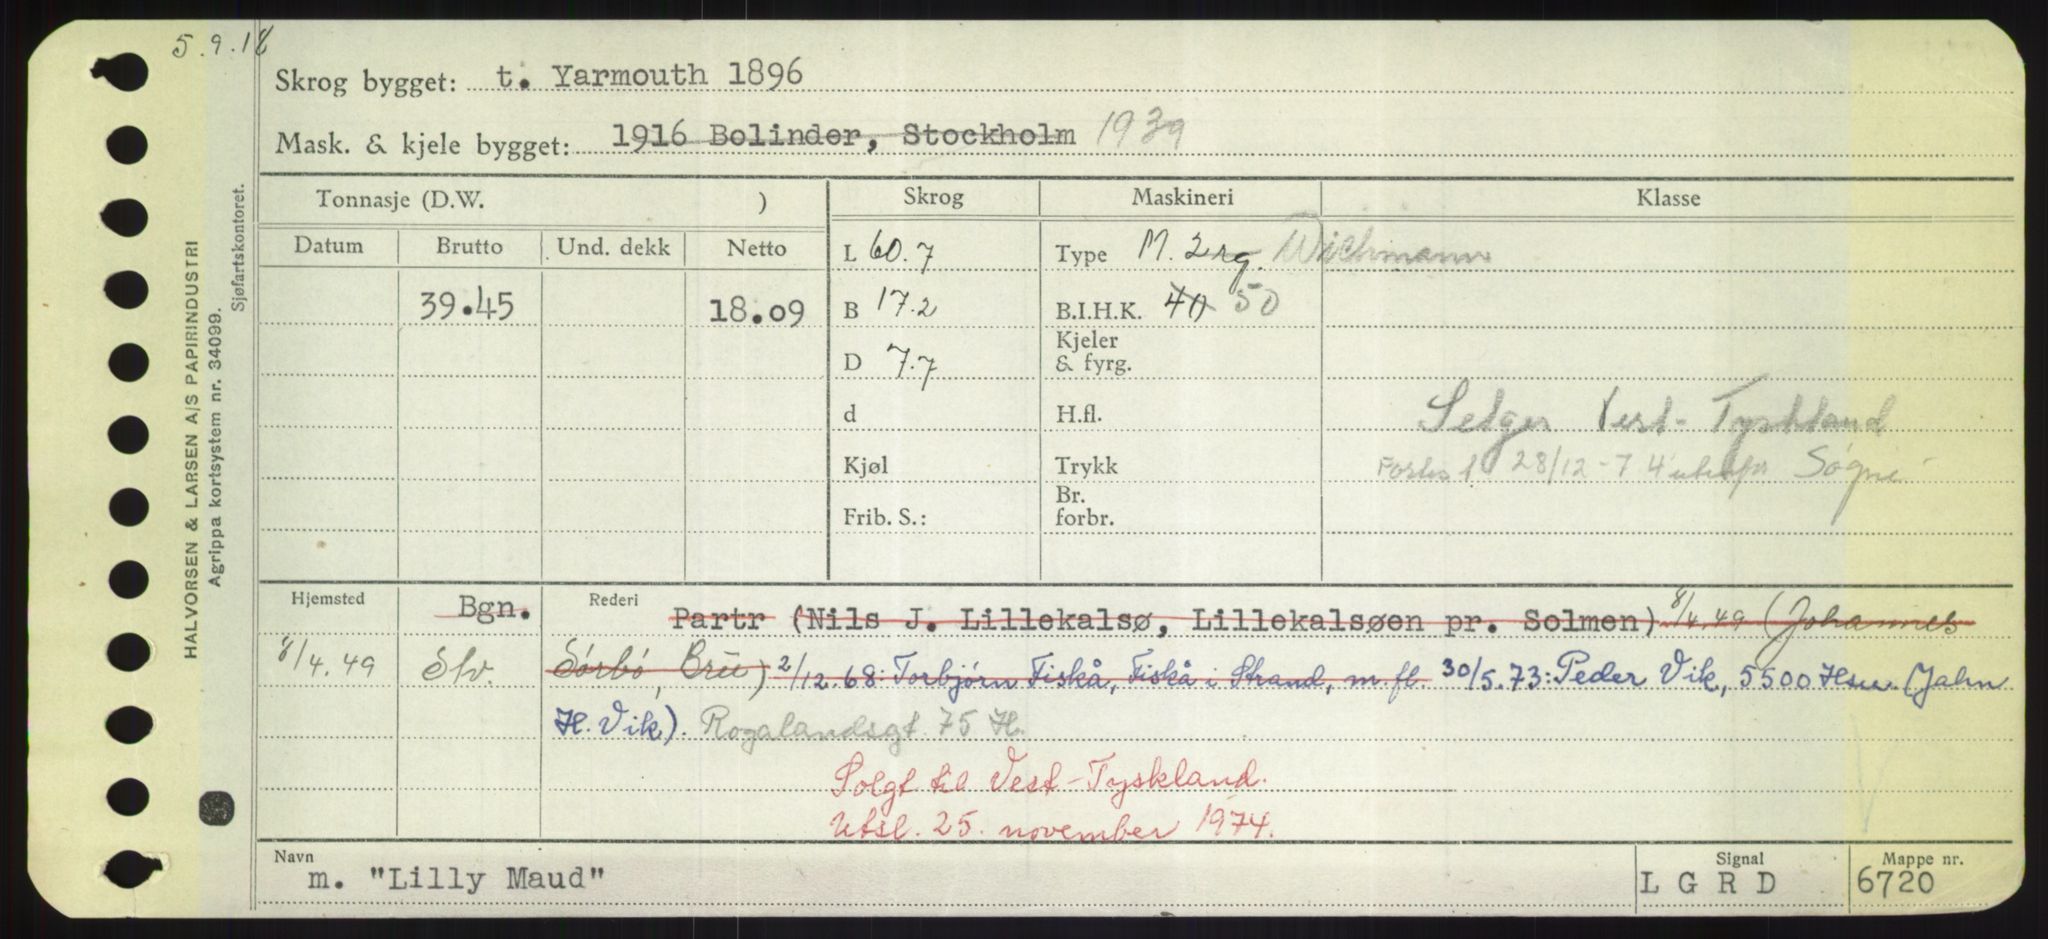 5.9.18
Skrog bygget: t. Yarmouth 1896
Mask. & kjele bygget: 1916 Bolinder, Stockholm 1939
Tonnasje (D.W. ) Skrog Maskineri Klasse
Datum Brutto Und. dekk Netto L 60.7 Type M. 2 rg. Wichmann
39.45 18.09 B 17.2 B.I.H.K. 40 50
D 7.7 Kjeler & fyrg.
d H.fl. Selges Vest-Tyskland
Kjøl Trykk 28/12-74 Søgne
Frib. S.: Br. forbr.
Hjemsted Bgn. Rederi Partr (Nils J. Lillekalsø, Lillekalsøen pr. Solmen) 8/4.49 (Johannes
8/4.49 Slv. Sørbø, Brue) 2/12.68: Torbjørn Fiskå, Fiskå i Strand, m. fl. 30/5.73: Peder Vik, 5500 Hsu. (Jahn
H. Vik). Rogalandsgt 75 H.
Solgt til Vest-Tyskland.
Utsl. 25. november 1974.
Navn m. "Lilly Maud" Signal L G R D Mappe nr. 6720
HALVORSEN & LARSEN A/S PAPIRINDUSTRI
Agrippa kortsystem nr. 34099.
Sjøfartskontoret.